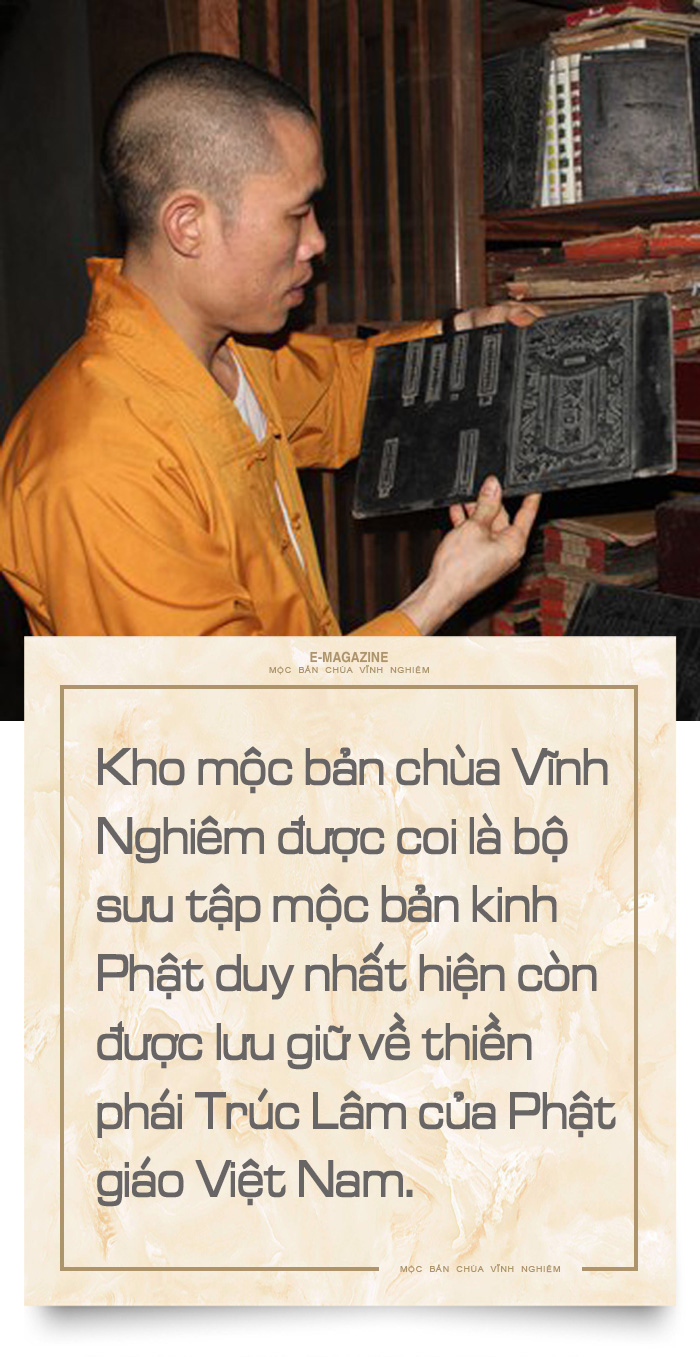 E-MAGAZINE
MỘC BẢN CHÙA VĨNH NGHIÊM
Kho mộc bản chùa Vĩnh
Nghiêm được coi là bộ
sưu tập mộc bản kinh
Phật duy nhất hiện còn
được lưu giữ về thiền
phái Trúc Lâm của Phật
giáo Việt Nam.
MỘC BẢN CHÙA VĨNH NGHIÊM